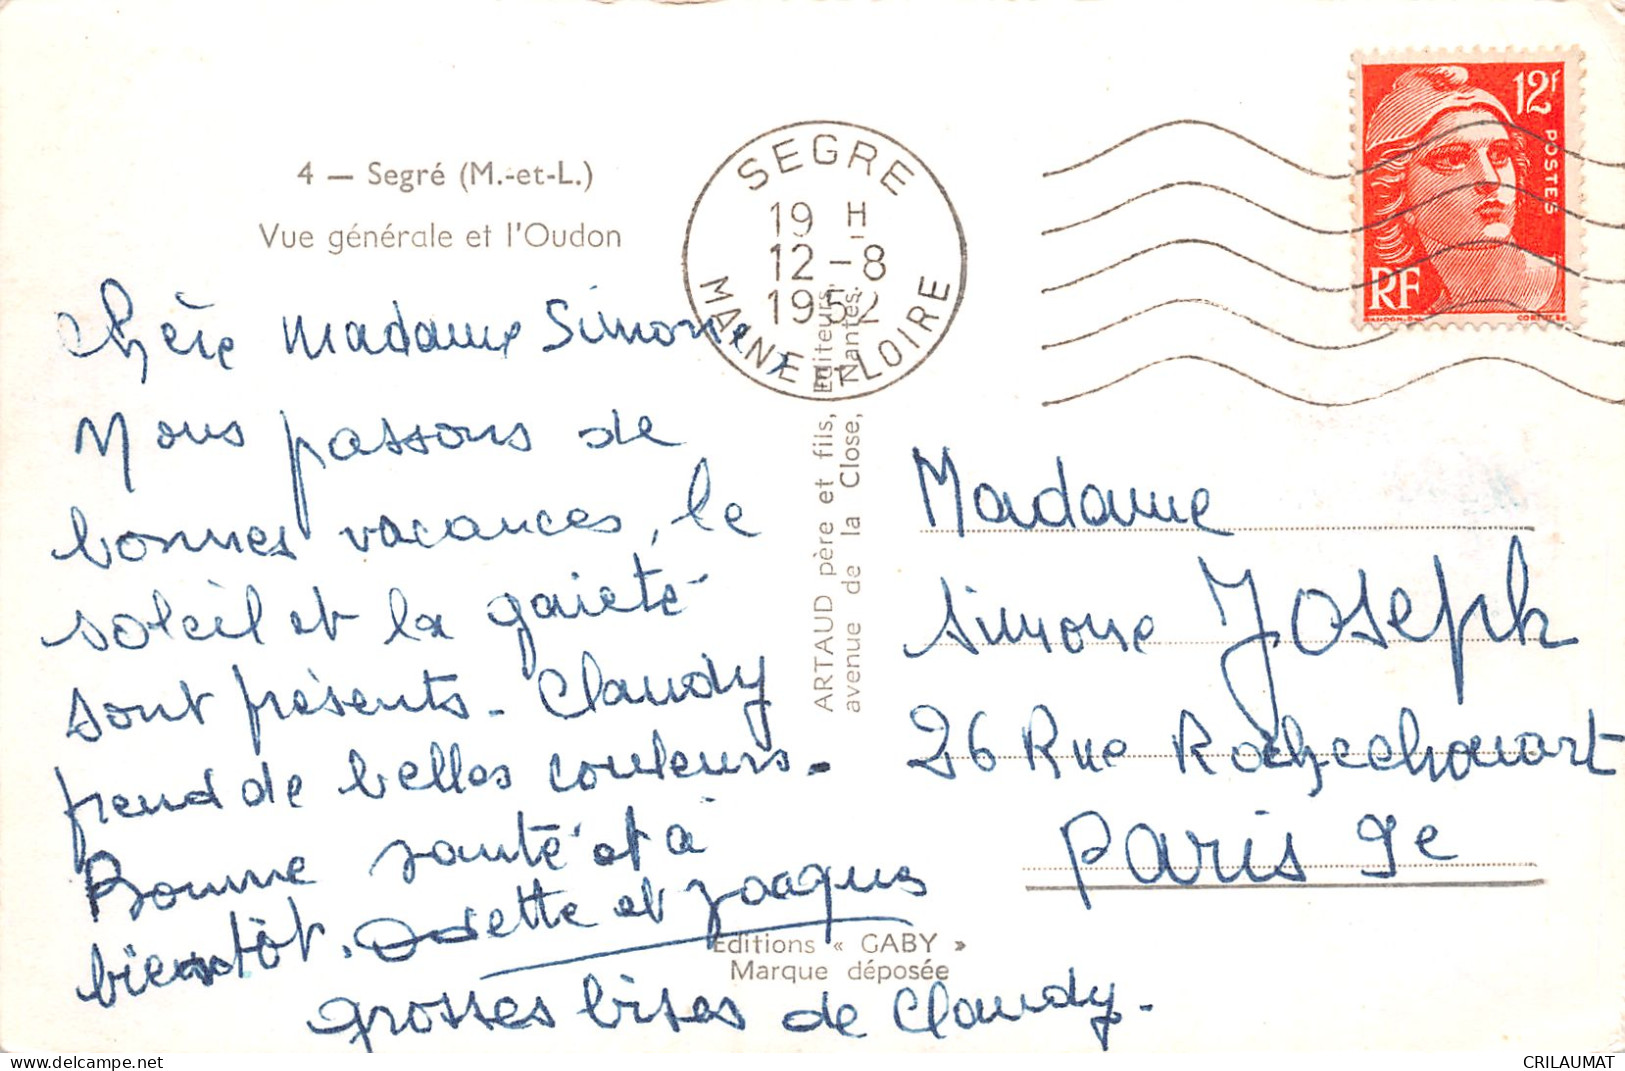 4 — Segré (M.-et-L.)
Vue générale et l'Oudon
SEGRE
19 H
12-8
1952
MAINE ET LOIRE
12F
POSTES
RF
Chère Madame Simone,
Nous passons de
bonnes vacances, le
soleil et la gaieté
sont présents. Claudy
prend de belles couleurs.
Bonne santé et à
bientôt. Odette et Jacques
grosses bises de Claudy.
ARTAUD père et fils, Editeurs,
avenue de la Close, Nantes.
Madame
Simone Joseph
26 Rue Rochechouart
Paris 9e
Editions « GABY »
Marque déposée
CRILAUMAT